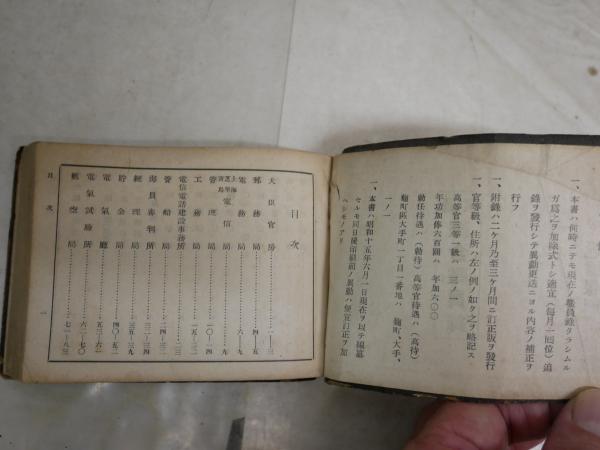 一、本書ハ何時ニテモ現在ノ職員錄タラシムル
ガ爲之ヲ加除式トシ適宜(每月一囘位)追
錄ヲ發行シテ異動更迭ニヨル內容ノ補正ヲ
行フ
一、附錄ハ二ケ月乃至三ケ月間ニ訂正版ヲ發行
一、官等級、住所ハ左ノ例ノ如ク之ヲ略記ス
高等官三等一級ハ 三ノ一
年功加俸六百圓ハ 年加六〇〇
勅任待遇ハ(勅待)高等官待遇ハ(高待)
麴町區大手町一丁目一番地ハ 麴町、大手、
一ノ一
一、本書ハ昭和十五年六月一日現在ヲ以テ編纂
セルモ同日後印刷前ノ異動ハ便宜訂正ヲ加
ヘシモノアリ
目次
大臣官房……一—三
郵務局……四—五
電務局……六
電信局……九
管理局……一〇—一四
工務局……
電信電話建設事務所……一三
管船局……
海員審判所……三一—三四
經理局……三五—三九
貯金局……四〇—五一
電氣廳……五二—六一
電氣試驗所……六二—七〇
航空局……七一—九三
目次
一